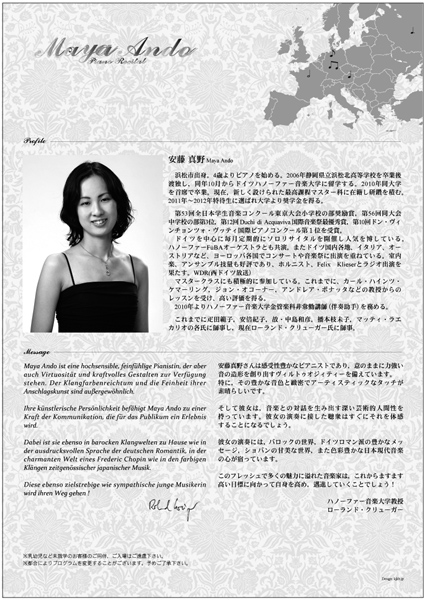 Maya Ando
Piano Recital
Profile
安藤 真野 Maya Ando
浜松市出身。4歳よりピアノを始める。2006年静岡県立浜松北高等学校を卒業後
渡独し、同年10月からドイツハノーファー音楽大学に留学する。2010年同大学
を首席で卒業。現在、新しく設けられた最高課程マスター科に在籍し研鑽を積む。
2011年〜2012年特待生に選ばれ大学より奨学金を得る。
第53回全日本学生音楽コンクール東京大会小学校の部奨励賞、第56回同大会
中学校の部第3位、第12回Duchi di Acquaviva国際音楽祭最優秀賞、第10回ドン・ヴィ
ンチョンツォ・ヴィッティ国際ピアノコンクール第1位を受賞。
ドイツを中心に毎月定期的にソロリサイタルを開催し人気を博している。
ハノーファーFuBAオーケストラとも共演。またドイツ国内各地、イタリア、オー
ストリアなど、ヨーロッパ各国でコンサートや音楽祭に出演を重ねている。室内
楽、アンサンブル技量も好評であり、ホルニスト、Felix Klieserとラジオ出演を
果たす。WDR(西ドイツ放送)
マスタークラスにも積極的に参加している。これまでに、カール・ハインツ・
ケマーリング、ジョン・オコーナー、アンドレア・ボナッタなどの教授からの
レッスンを受け、高い評価を得る。
2010年よりハノーファー音楽大学金管楽科非常勤講師(伴奏助手)を務める。
これまでに疋田範子、安倍紀子、故・中島和彦、播本枝未子、マッティ・ラエ
カリオの各氏に師事し、現在ローランド・クリューガー氏に師事。
Message
Maya Ando ist eine hochsensible, feinfühlige Pianistin, der aber
auch Virtuosität und kraftvolles Gestalten zur Verfügung
stehen. Der Klangfarbenreichtum und die Feinheit ihrer
Anschlagskunst sind außergewöhnlich.
Ihre künstlerische Persönlichkeit befähigt Maya Ando zu einer
Kraft der Kommunikation, die für das Publikum ein Erlebnis
wird.
Dabei ist sie ebenso in barocken Klangwelten zu Hause wie in
der ausdrucksvollen Sprache der deutschen Romantik, in der
charmanten Welt eines Frederic Chopin wie in den farbigen
Klängen zeitgenössischer japanischer Musik.
Diese ebenso zielstrebige wie sympathische junge Musikerin
wird ihren Weg gehen !
安藤真野さんは感受性豊かなピアニストであり、意のままに力強い
音の造形を創り出すヴィルトゥオジティーを備えています。
特に、その豊かな音色と緻密でアーティスティックなタッチが
素晴らしいです。
そして彼女は、音楽との対話を生み出す深い芸術的人間性を
持っています。彼女の演奏に接した聴衆はすぐにそれを体感
することになるでしょう。
彼女の演奏には、バロックの世界、ドイツロマン派の豊かなメッ
セージ、ショパンの甘美な世界、また色彩豊かな日本現代音楽
の心が宿っています。
このフレッシュで多くの魅力に溢れた音楽家は、これからますます
高い目標に向かって自身を高め、邁進していくことでしょう！
ハノーファー音楽大学教授
ローランド・クリューガー
※乳幼児など未就学のお客様のご同伴、ご入場はご遠慮下さい。
※都合によりプログラムを変更することがございます。予めご了承下さい。